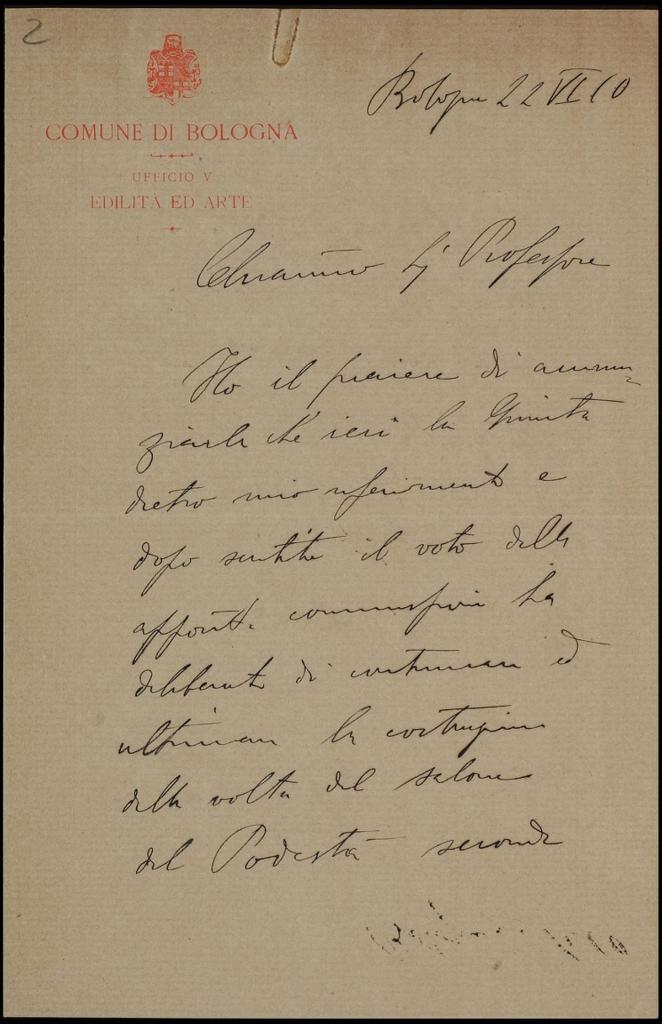 2
COMUNE DI BOLOGNA
UFFICIO V
EDILITA ED ARTE
Bologna 22 VI 10
Chiarissimo Sig Professore
Ho il piacere di annun=
ziarle che ieri la Giunta
dietro mio riferimento e
dopo sentito il voto della
apposita commissione ha
deliberato di continuare ed
ultimare la costruzione
della volta del salone
del Podestà secondo